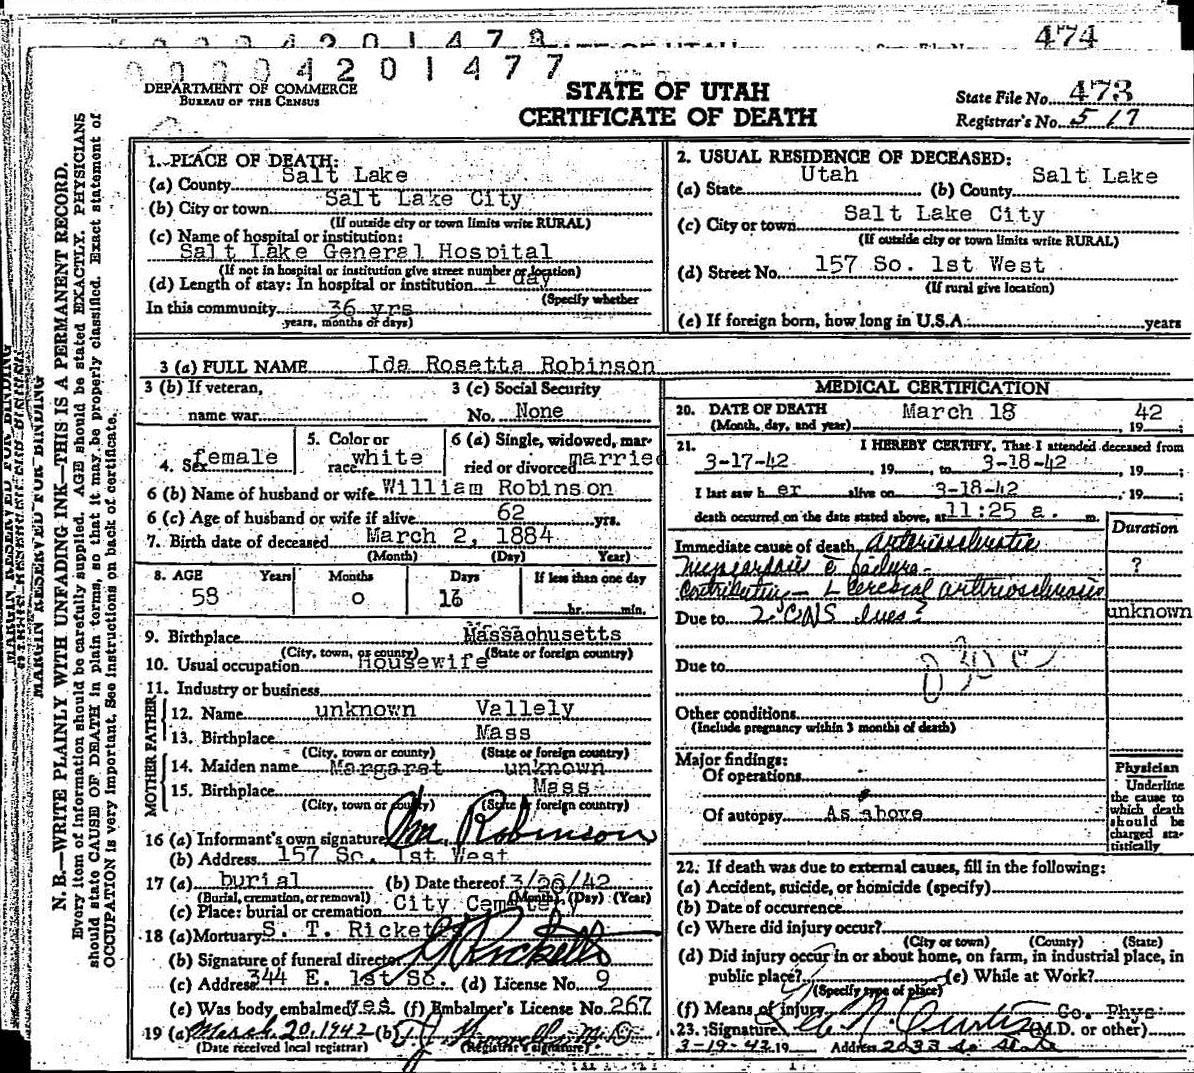 474
0 0 0 0 4 2 0 1 4 7 8
0 0 0 0 4 2 0 1 4 7 7
DEPARTMENT OF COMMERCE
BUREAU OF THE CENSUS
STATE OF UTAH
CERTIFICATE OF DEATH
State File No. 473
Registrar's No. 517
MARGIN RESERVED FOR BINDING
N. B.—WRITE PLAINLY WITH UNFADING INK—THIS IS A PERMANENT RECORD.
Every item of information should be carefully supplied. AGE should be stated EXACTLY. PHYSICIANS
should state CAUSE OF DEATH in plain terms, so that it may be properly classified. Exact statement of
OCCUPATION is very important. See instructions on back of certificate.
1. PLACE OF DEATH:
(a) County Salt Lake
(b) City or town Salt Lake City
(If outside city or town limits write RURAL)
(c) Name of hospital or institution:
Salt Lake General Hospital
(If not in hospital or institution give street number or location)
(d) Length of stay: In hospital or institution 1 day
(Specify whether
In this community 36 yrs
years, months or days)
2. USUAL RESIDENCE OF DECEASED:
(a) State Utah (b) County Salt Lake
(c) City or town Salt Lake City
(If outside city or town limits write RURAL)
(d) Street No. 157 So. 1st West
(If rural give location)
(e) If foreign born, how long in U.S.A. years
3 (a) FULL NAME Ida Rosetta Robinson
3 (b) If veteran, name war
3 (c) Social Security No. None
4. Sex female
5. Color or race white
6 (a) Single, widowed, married or divorced married
6 (b) Name of husband or wife William Robinson
6 (c) Age of husband or wife if alive 62 yrs.
7. Birth date of deceased March 2, 1884
(Month) (Day) Year)
8. AGE Years Months Days If less than one day
58 0 16 hr. min.
9. Birthplace Massachusetts
(City, town, or county) (State or foreign country)
10. Usual occupation Housewife
11. Industry or business
FATHER
12. Name unknown Vallely
13. Birthplace Mass
(City, town or county) (State or foreign country)
MOTHER
14. Maiden name Margaret unknown
15. Birthplace Mass
(City, town or county) (State or foreign country)
16 (a) Informant's own signature Wm. Robinson
(b) Address 157 So. 1st West
17 (a) burial (b) Date thereof 3/20/42
(Burial, cremation, or removal) (Month) (Day) (Year)
(c) Place: burial or cremation City Cemetery
18 (a) Mortuary S. T. Ricketts
(b) Signature of funeral director Ricketts
(c) Address 344 E. 1st So. (d) License No. 9
(e) Was body embalmed yes (f) Embalmer's License No. 267
19 (a) March 20, 1942 (b) M.D.
(Date received local registrar) (Registrar's signature)
MEDICAL CERTIFICATION
20. DATE OF DEATH March 18 1942
(Month, day, and year)
21. I HEREBY CERTIFY, That I attended deceased from
3-17-42, 19 , to 3-18-42, 19 ;
I last saw her alive on 3-18-42, 19 ;
death occurred on the date stated above, at 11:25 a. m.
Duration
Immediate cause of death arteriosclerotic
failure ?
Contributing — 1 cerebral arteriosclerosis
Due to 2. CNS lues? unknown
Due to
Other conditions
(Include pregnancy within 3 months of death)
Major findings:
Of operations
Of autopsy As above
Physician
Underline
the cause to
which death
should be
charged sta-
tistically
22. If death was due to external causes, fill in the following:
(a) Accident, suicide, or homicide (specify)
(b) Date of occurrence
(c) Where did injury occur?
(City or town) (County) (State)
(d) Did injury occur in or about home, on farm, in industrial place, in
public place? (e) While at Work?
(Specify type of place)
(f) Means of injury
23. Signature Curtis Co. Phys
(M.D. or other)
3-19-42 19 Address 2033 So State